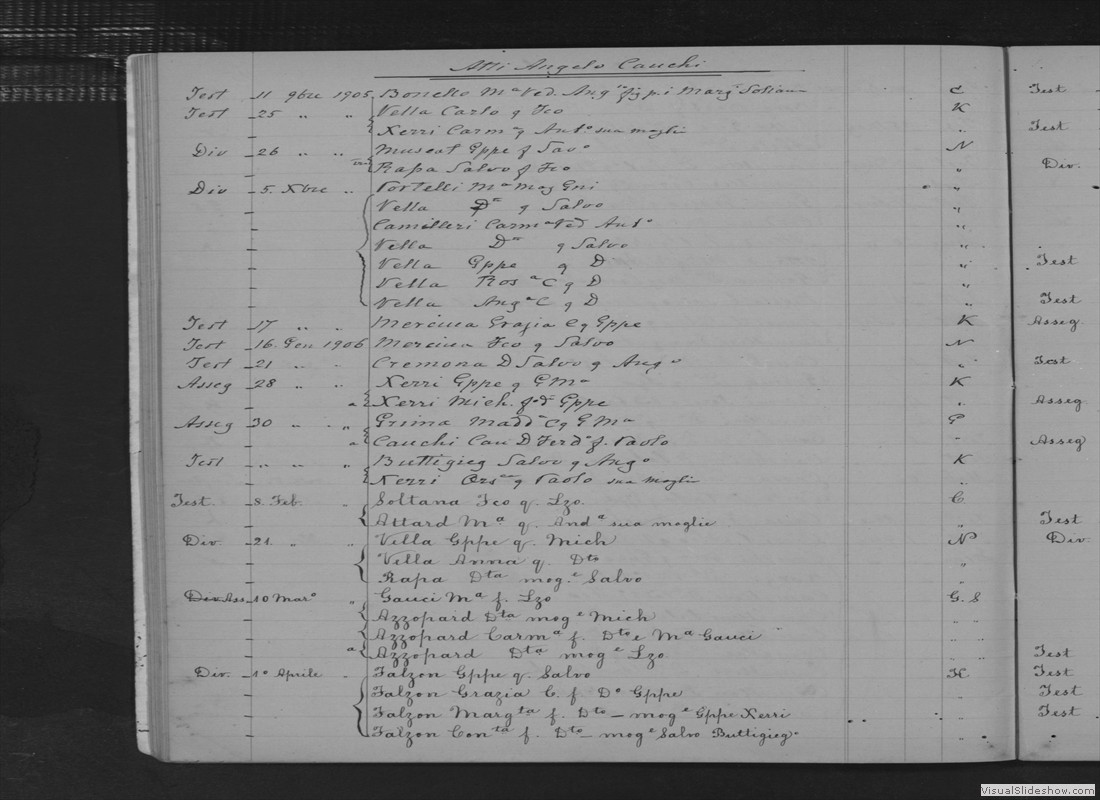 Atti Angelo Cauchi
Test 11 9bre 1905 Bonello Ma Ved. Ango C Test
Test 25 " " Vella Carlo q Fco K
Xerri Carma q Anto sua moglie " Test
Div 26 " " Muscat Gppe f Savo N
Rapa Salvo f Fco " Div.
Div 5 Xbre " Portelli Ma mog Gni "
Vella Da q Salvo "
Camilleri Carma Ved Anto "
Vella Da q Salvo "
Vella Gppe q D " Test
Vella Rosa C q D "
Vella Anga C q D " Test
Test 17 " " Mercieca Grazia C q Gppe K Asseg
Test 16 Gen 1906 Mercieca Fco q Salvo N
Test 21 " " Cremona D Salvo q Ango " Test
Asseg 28 " " Xerri Gppe q GMa K
a Xerri Mich. f. di Gppe " Asseg
Asseg 30 " " Grima Madda C q GMa G
a Cauchi Can D Ferdo f. Paolo " Asseg
Test " " " Buttigieg Salvo q Ango K
Xerri Orsa q Paolo sua moglie "
Test. 8 Feb. " Soltana Fco q. Lzo. C.
Attard Ma q. Anda sua moglie " Test
Div. 21. " " Vella Gppe q. Mich N Div.
Vella Anna q. Dto "
Rapa Dta mog.e Salvo "
Div Ass 10 Maro " Gauci Ma f. Lzo G. S
Azzopard Dta moge Mich " "
Azzopard Carma f. Dto e Ma Gauci " "
a Azzopard Dta moge Lzo. " " Test
Div. 1o Aprile " Falzon Gppe q. Salvo K Test
Falzon Grazia C. f Do Gppe " Test
Falzon Margta f. Dto - moge Gppe Xerri " Test
Falzon Conta f. Dto - moge Salvo Buttigieg. "
VisualSlideshow.com